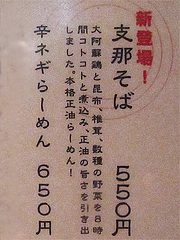 新登場！
支那そば 550円
大阿蘇鶏と昆布、椎茸、数種の野菜を8時
間コトコトと煮込み、正油の旨さを引き出
しました。本格正油らーめん！
辛ネギらーめん 650円